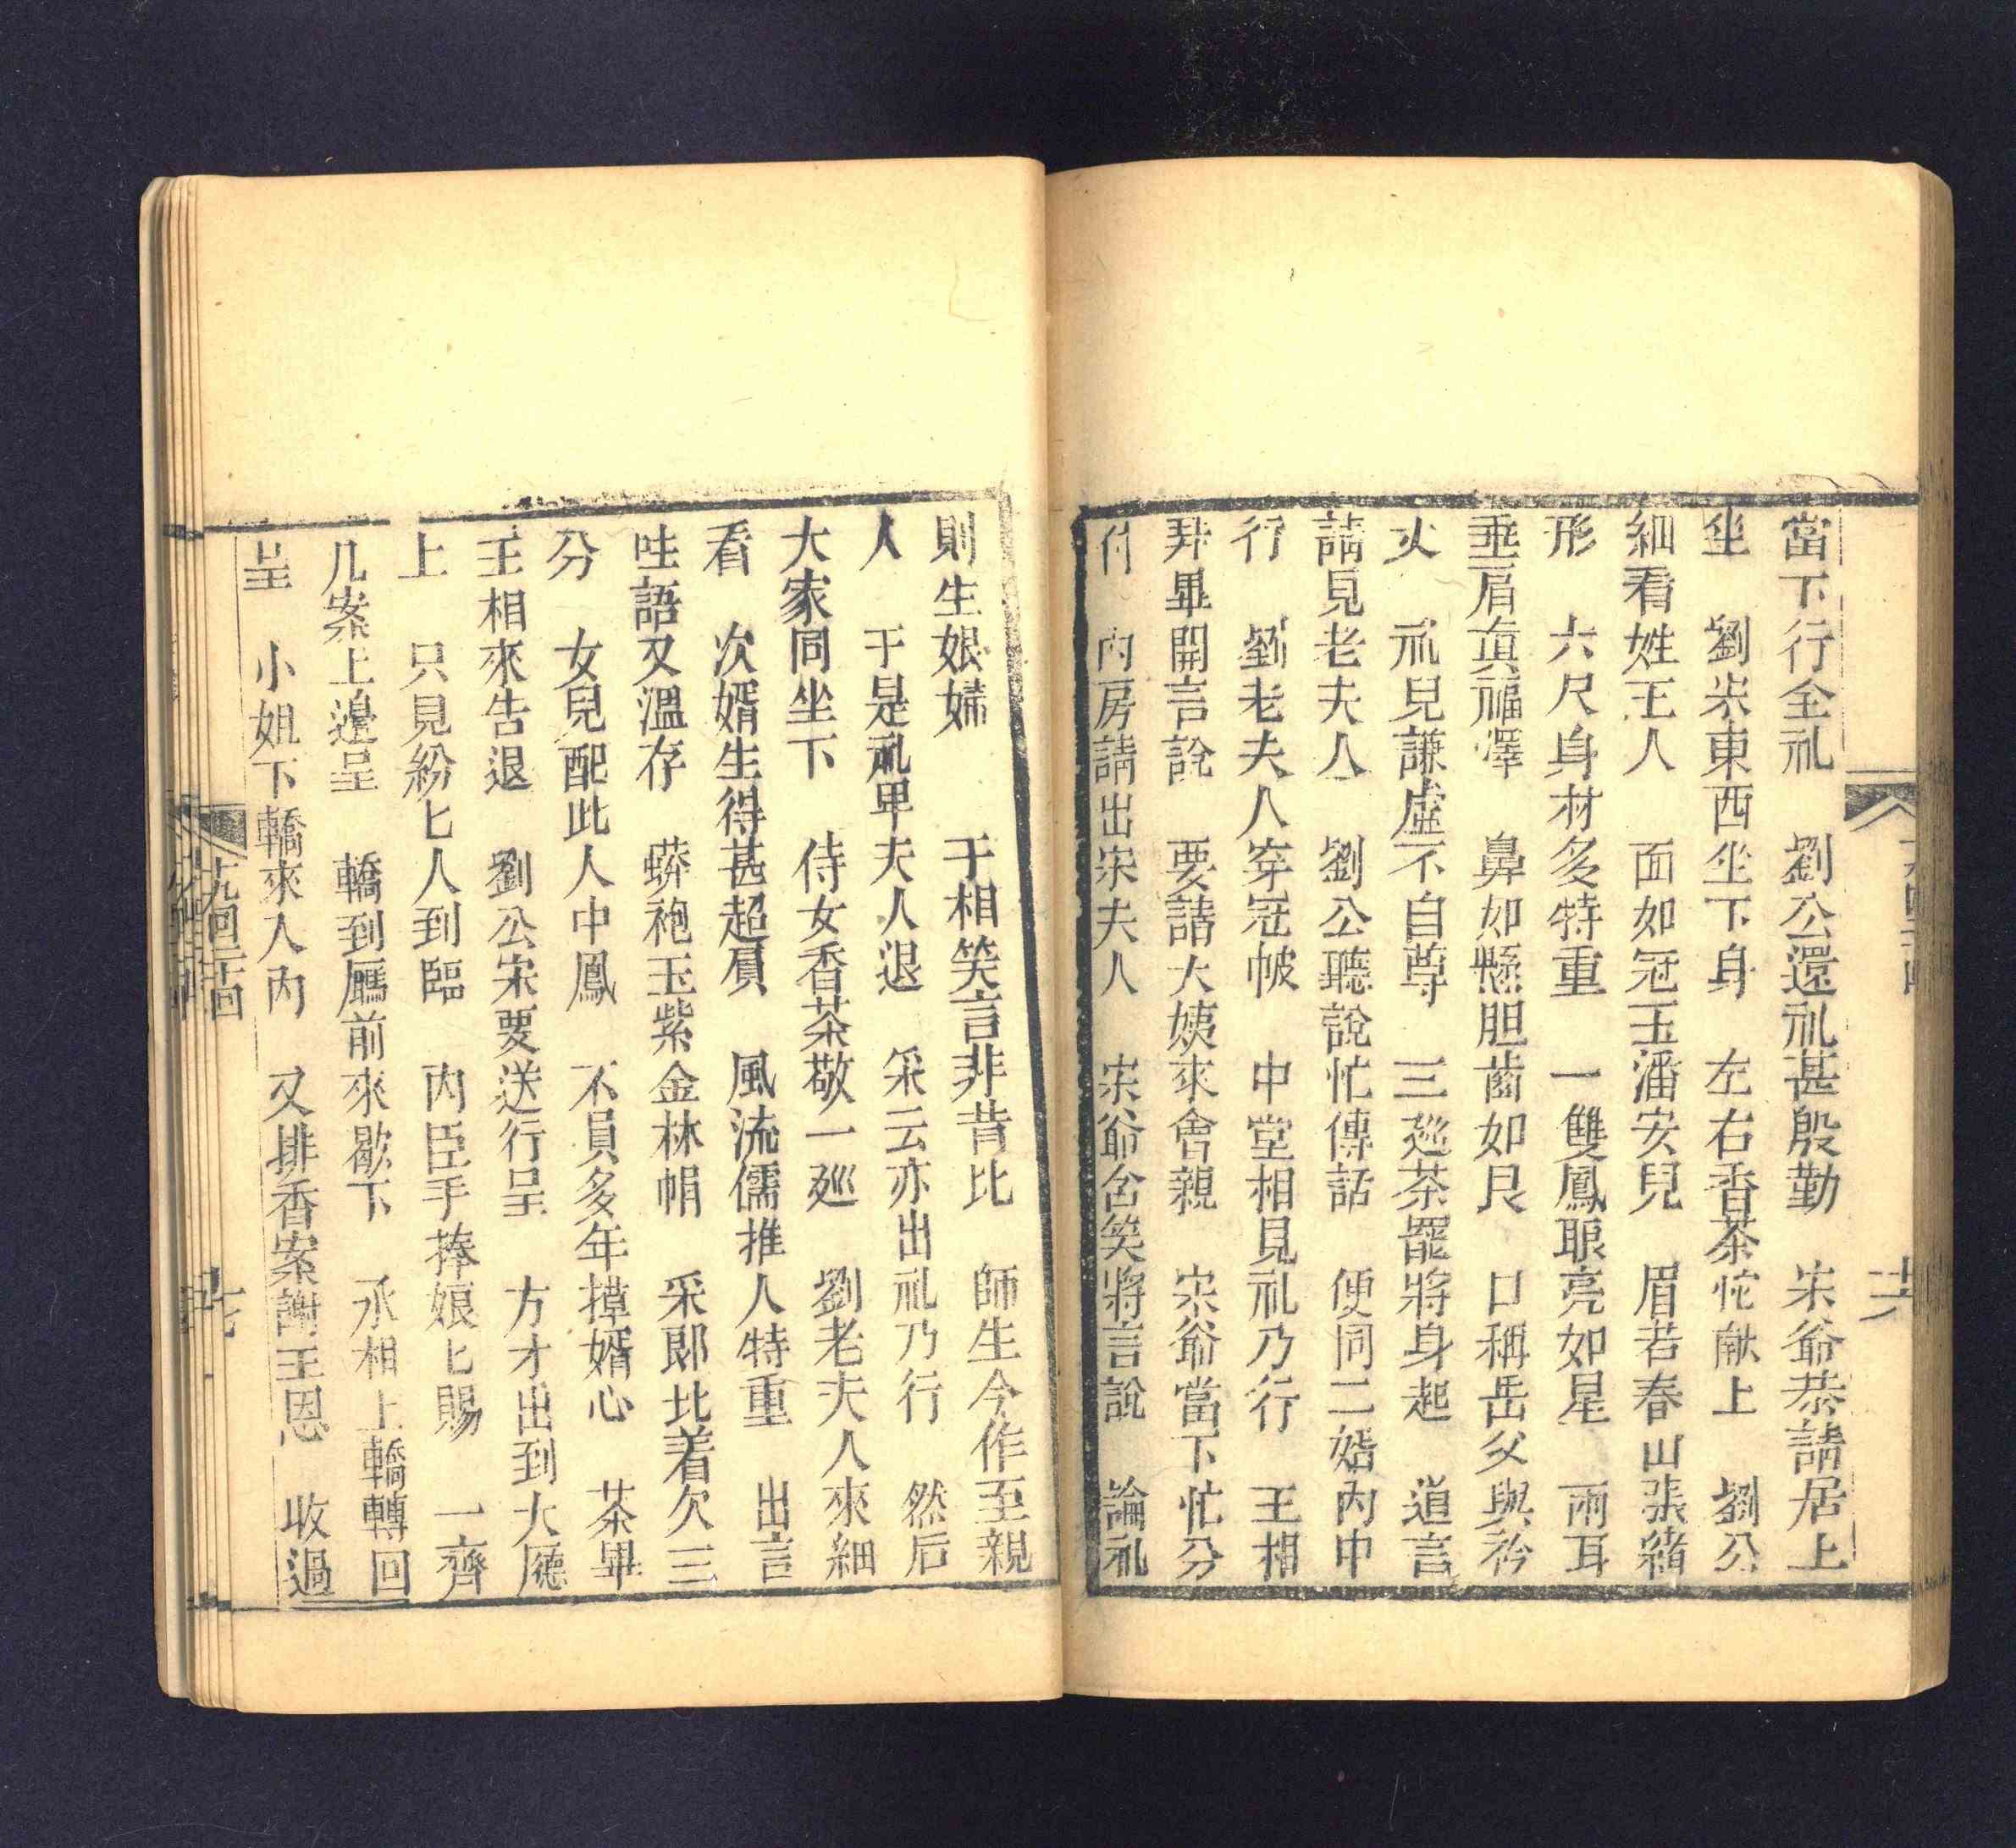 當下行全礼　劉公還礼甚殷勤　宋爺恭請居上
坐　劉宋東西坐下身　左右香茶忙献上　劉公
細看姓王人　面如冠玉潘安兒　眉若春山張緒
形　六尺身材多特重　一雙鳳眼亮如星　兩耳
垂肩真福澤　鼻如懸胆齒如艮　口稱岳父與衿
丈　礼兒謙虛不自尊　三廵茶罷將身起　道言
請見老夫人　劉公聽說忙傳話　便同二婿內中
行　劉老夫人穿冠帔　中堂相見礼乃行　王相
拜畢開言說　要請大姨來會親　宋爺當下忙分
付　內房請出宋夫人　宋爺含笑將言說　論礼
六
則生娘婦　于相笑言非昔比　師生今作至親
人　于是礼畢夫人退　采云亦出礼乃行　然后
大家同坐下　侍女香茶敬一廵　劉老夫人來細
看　次婿生得甚超羣　風流儒推人特重　出言
吐語又溫存　蟒袍玉紫金林帽　采郎比着欠三
分　女兒配此人中鳳　不負多年擇婿心　茶畢
王相來告退　劉公宋要送行呈　方才出到大廳
上　只見紛匕人到臨　內臣手捧娘匕賜　一齊
几案上邉呈　轎到廳前來歇下　丞相上轎轉回
呈　小姐下轎來入內　又排香案謝王恩　收過
九回